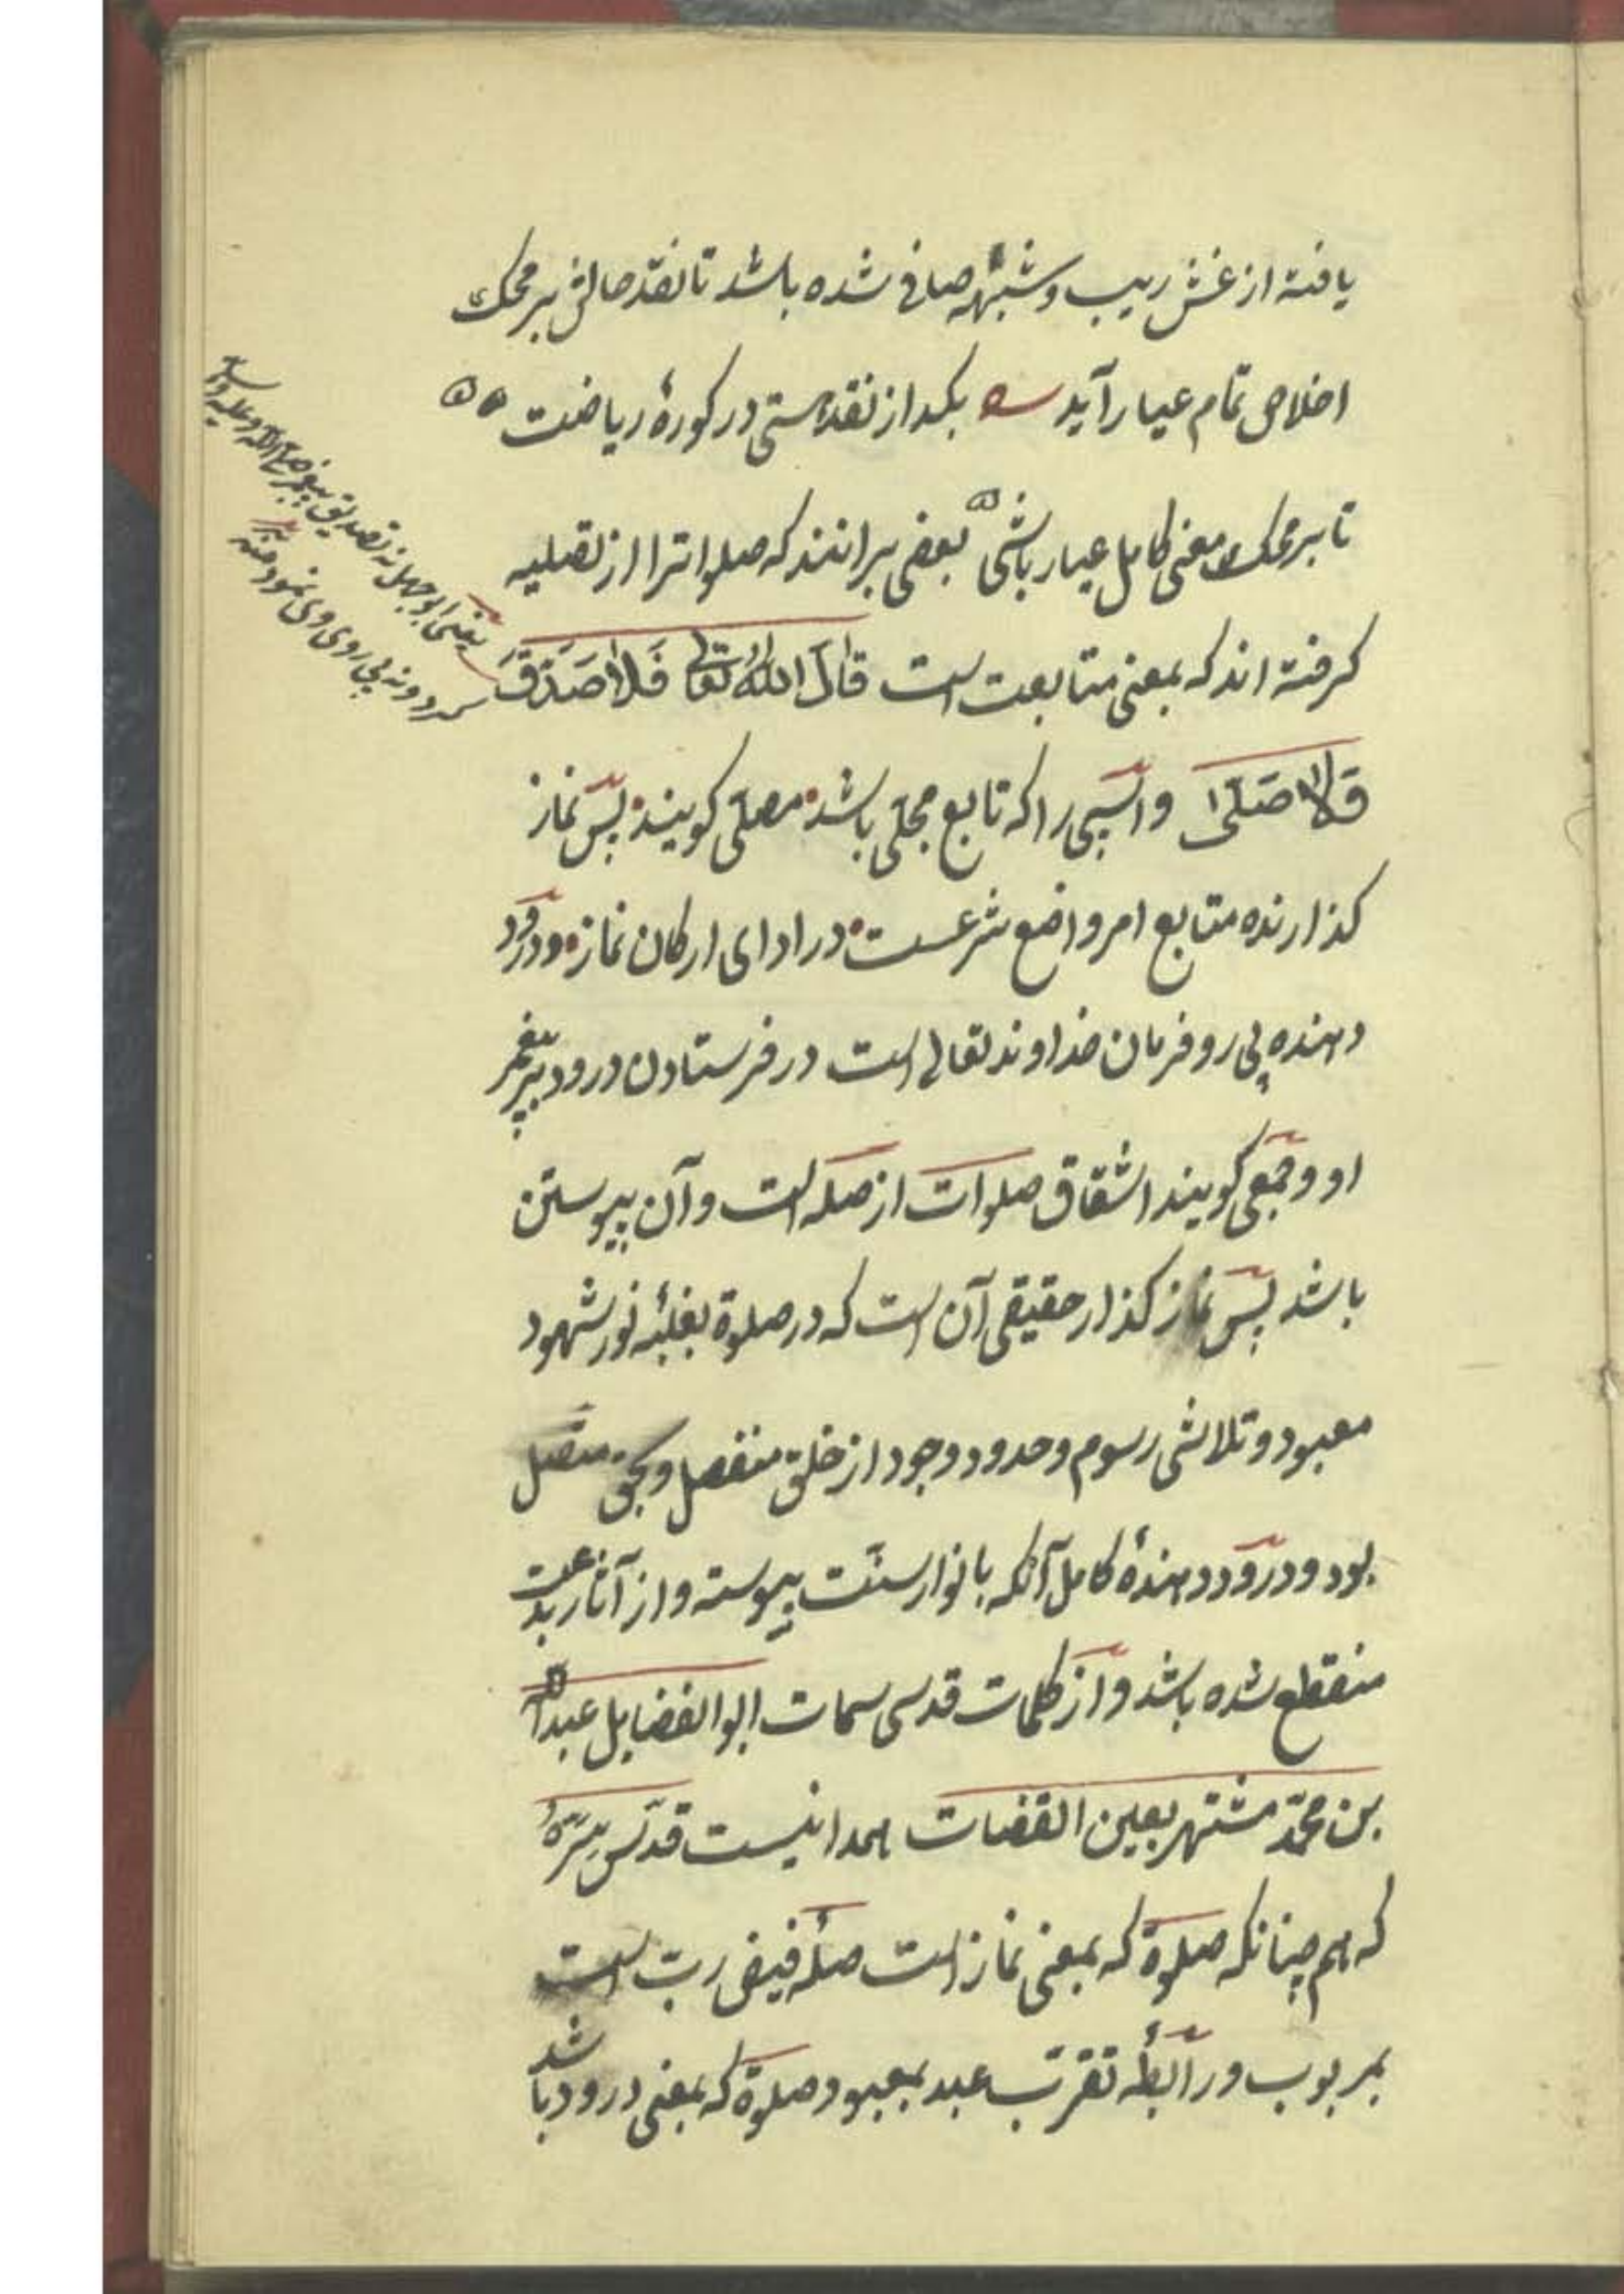 یافته از غش ریب و شبهه صافی شده باشد تا نقد حالش بر محک
اخلاص تمام عیار آید بکداز نقد هستی در کورهٔ ریاضت
تا بر محک معنی کامل عیار باشی بعضی برانند که صلوات را از تصلیه
کرفته اند که بمعنی متابعت است قال الله تعالی فَلا صَدَّقَ
وَلا صَلّی و اسپی را که تابع مجلّی باشد مصلّی کویند پس نماز
کذارنده متابع امر واضع شرعست در ادای ارکان نماز و درود
دهنده پی رو فرمان خداوند تعالی است در فرستادن درود بر پیغمبر
او و جمعی کویند اشتقاق صلوات از صله است و آن پیوستن
باشد پس نماز کذار حقیقی آن است که در صلوة بغلبهٔ نور شهود
معبود و تلاشی رسوم و حدود وجود از خلق منفصل و بحق متصل
بود و درود دهندهٔ کامل آنکه بانوار سنّت پیوسته و از آثار بدعت
منقطع شده باشد و از کلمات قدسی سمات ابو الفضایل عبدالله
بن محمّد مشتهر بعین القضات همدانیست قدّس سرّهُ
که هم چنانکه صلوة که بمعنی نماز است صلهٔ فیض ربّ است
بمربوب و رابطهٔ تقرّب عبد بمعبود صلوة که بمعنی درود باشد
یعنی ابو جهل نه تصدیق پیغمبر صلی الله علیه و آله
کرد و نه پی روی وی نمود منه